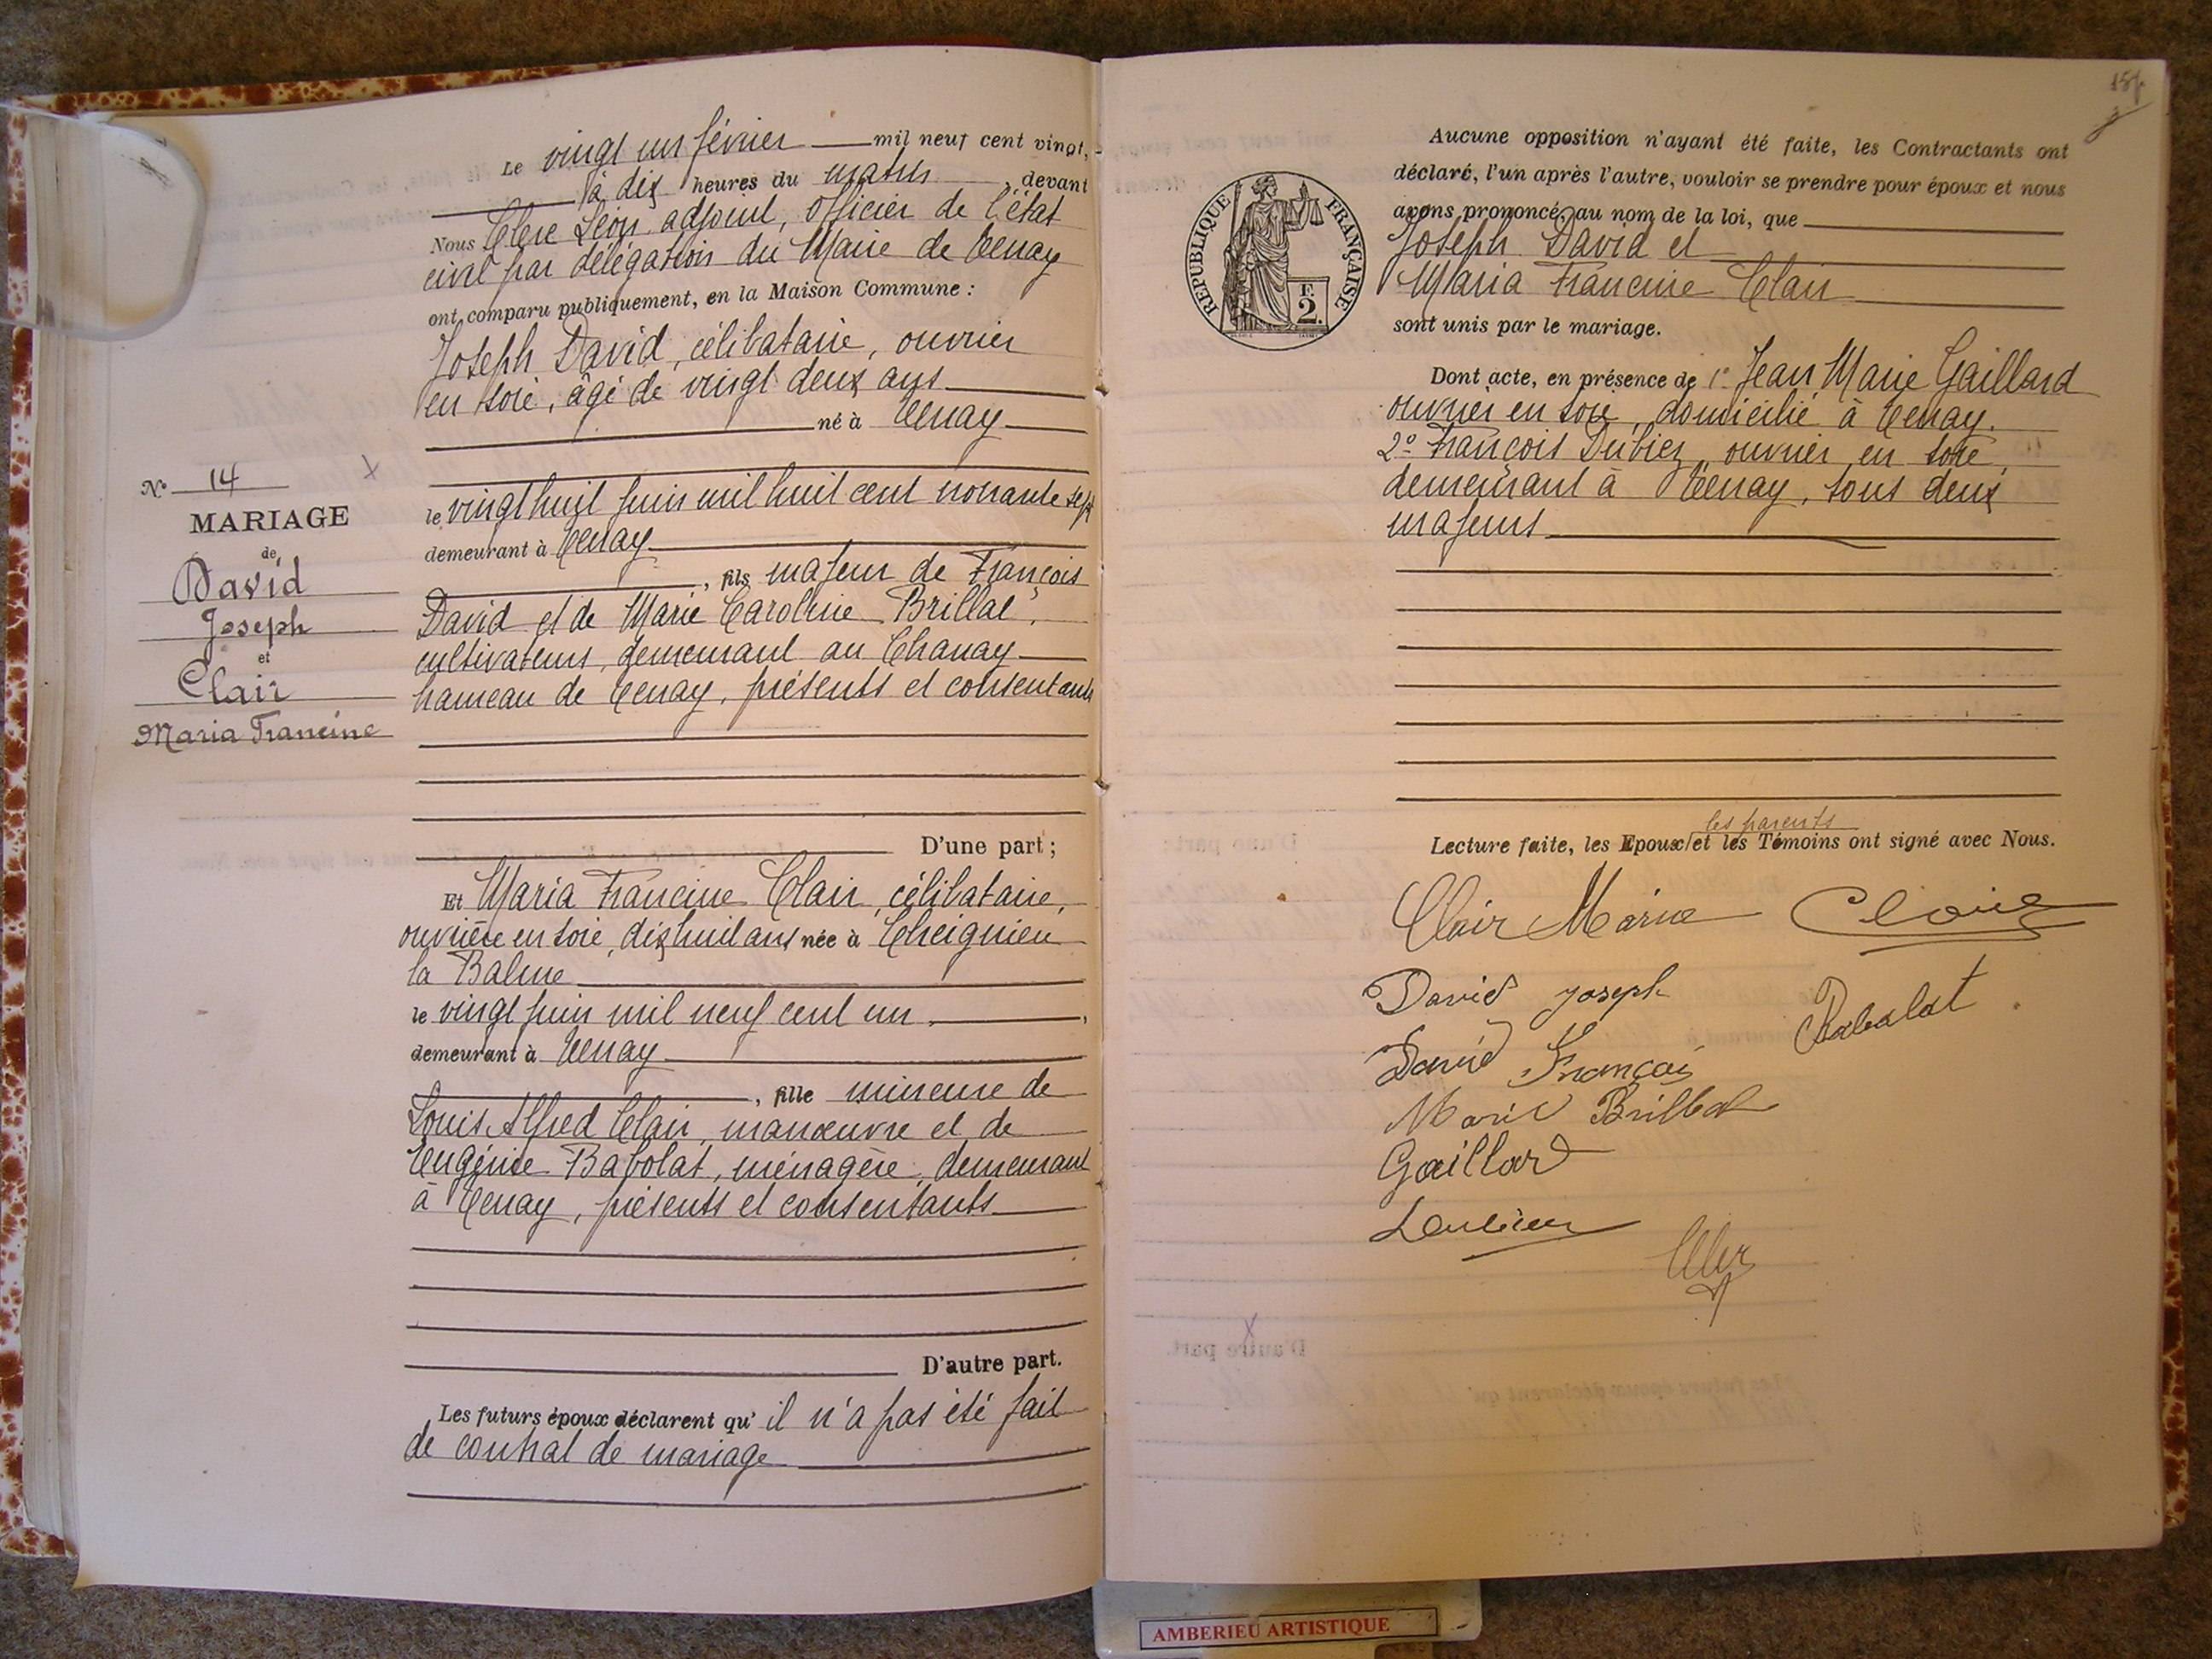 Le vingt un février mil neuf cent vingt,
à dix heures du matin, devant
Nous Clerc Léon adjoint, officier de l'état
civil par délégation du Maire de Tenay
ont comparu publiquement, en la Maison Commune :
Joseph David, célibataire, ouvrier
en soie, âgé de vingt deux ans
né à Tenay
le vingt huit juin mil huit cent nonante sept
demeurant à Tenay
, fils majeur de François
David et de Marie Caroline Brillat,
cultivateurs, demeurant au Chanay
hameau de Tenay, présents et consentants
D'une part ;
Et Maria Francine Clair, célibataire,
ouvrière en soie, dix huit ans née à Cheignieu
la Balme
le vingt juin mil neuf cent un,
demeurant à Tenay
, fille mineure de
Louis Alfred Clair, manœuvre et de
Eugénie Babolat, ménagère, demeurant
à Tenay, présents et consentants
D'autre part.
Les futurs époux déclarent qu' il n'a pas été fait
de contrat de mariage
No 14
MARIAGE
de
David
Joseph
et
Clair
Maria Francine
157
Aucune opposition n'ayant été faite, les Contractants ont
déclaré, l'un après l'autre, vouloir se prendre pour époux et nous
avons prononcé, au nom de la loi, que
Joseph David et
Maria Francine Clair
sont unis par le mariage.
REPUBLIQUE FRANÇAISE
F.
2.
Dont acte, en présence de 1º Jean Marie Gaillard
ouvrier en soie, domicilié à Tenay.
2º François Dubiez, ouvrier en soie,
demeurant à Tenay, tous deux
majeurs
les parents
Lecture faite, les Epoux et les Témoins ont signé avec Nous.
Clair Maria
David Joseph
Babolat
David François
Marie Brillat
Gaillard
D'autre part.
AMBERIEU ARTISTIQUE